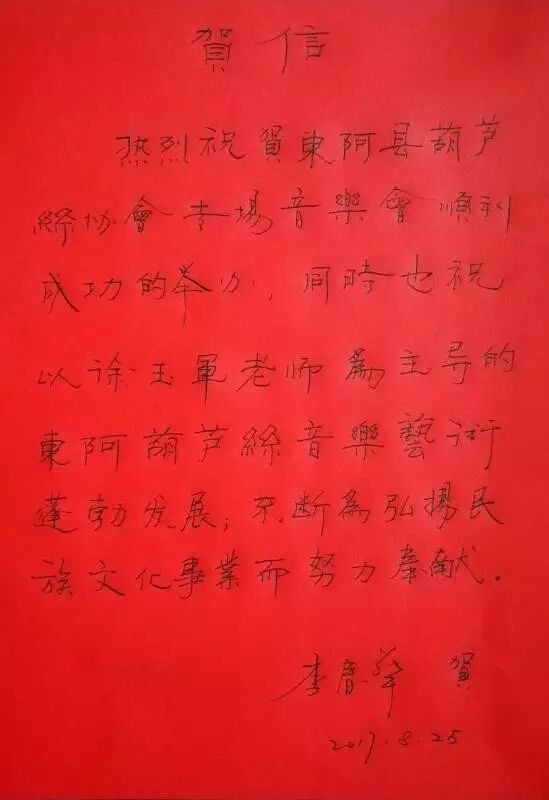 賀信
热烈祝賀東阿县葫芦
絲协會专場音樂會順利
成功的举办，同時也祝
以徐玉軍老师為主导的
東阿葫芦絲音樂藝術
蓬勃发展；不断為弘揚民
族文化事業而努力奉献。
李春华 賀
2017.8.25